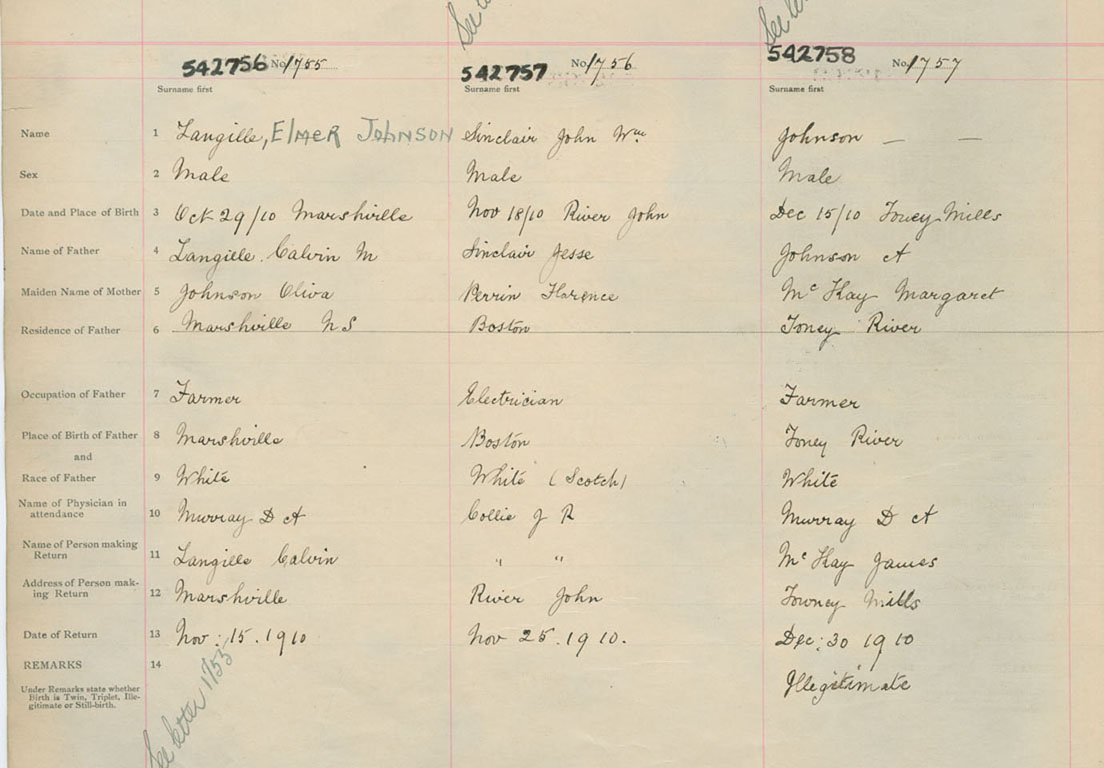 See
See
542756 No. 1755 542757 No. 1756 542758 No. 1757
Surname first Surname first Surname first
Name 1 Langille, ELMER JOHNSON Sinclair John Wm. Johnson — —
Sex 2 Male Male Male
Date and Place of Birth 3 Oct 29/10 Marshville Nov 18/10 River John Dec 15/10 Toney Mills
Name of Father 4 Langille. Calvin M Sinclair Jesse Johnson A
Maiden Name of Mother 5 Johnson Oliva Perrin Florence McKay Margaret
Residence of Father 6 Marshville N S Boston Toney River
Occupation of Father 7 Farmer Electrician Farmer
Place of Birth of Father 8 Marshville Boston Toney River
and
Race of Father 9 White White (Scotch) White
Name of Physician in
attendance 10 Murray D A Collie J R Murray D A
Name of Person making
Return 11 Langille Calvin " " McKay James
Address of Person mak-
ing Return 12 Marshville River John Towney Mills
Date of Return 13 Nov: 15. 1910 Nov 25. 1910. Dec: 30 1910
REMARKS 14
Under Remarks state whether
Birth is Twin, Triplet, Ille-
gitimate or Still-birth.
Illegitimate
See letter 1755